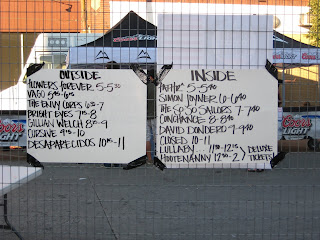 OUTSIDE
FLOWERS FOREVER 5-5:30
VAGO 5:45-6:15
THE ENVY CORPS 6:30-7
BRIGHT EYES 7:15-8
GILLIAN WELCH 8:15-9
CURSIVE 9:15-10
DESAPARECIDOS 10:15-11
INSIDE
5-5:40
SIMON JOYNER 6-6:40
THE SO-SO SAILORS 7-7:40
CONCHANCE 8-8:40
DAVID DONDERO 9-9:40
CLOSED 10-11
LULLABY... 11:30-12:15
HOOTENANNY 12:30-2
DELUXE
TICKETS
Coors
LIGHT